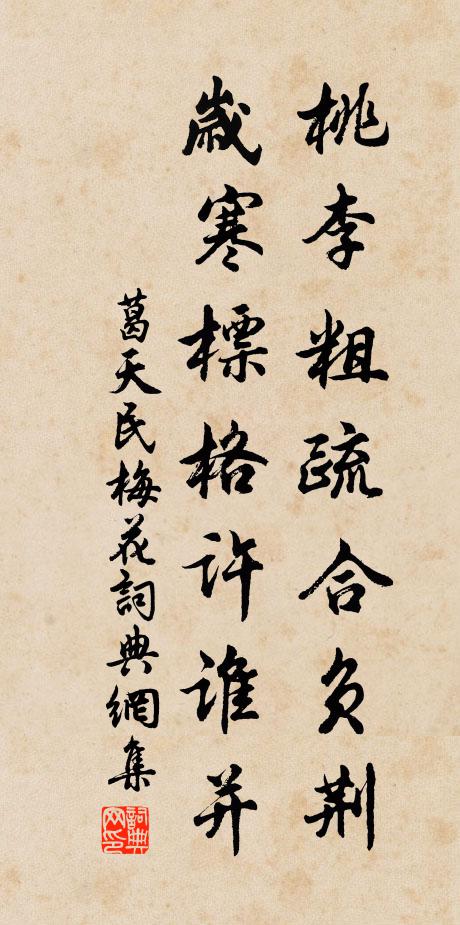 桃李粗疏合负荆
嵗寒標格许谁并
葛天民梅花詞典網集
詞典网印